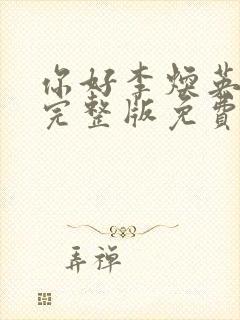 你好李焕英
完整版免费
弄禅